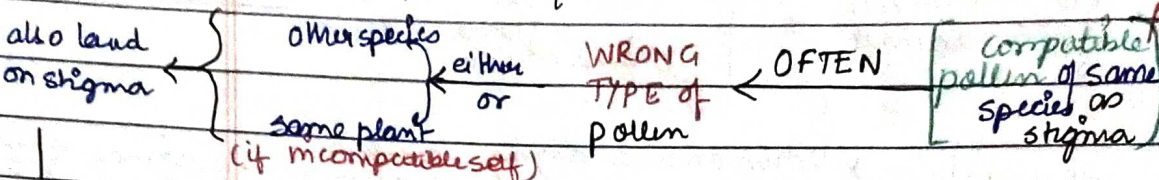 also land
on stigma
other species
same plant
(if incompatible self)
either
or
WRONG
TYPE of
pollen
OFTEN
compatible
pollen of same
species as
stigma